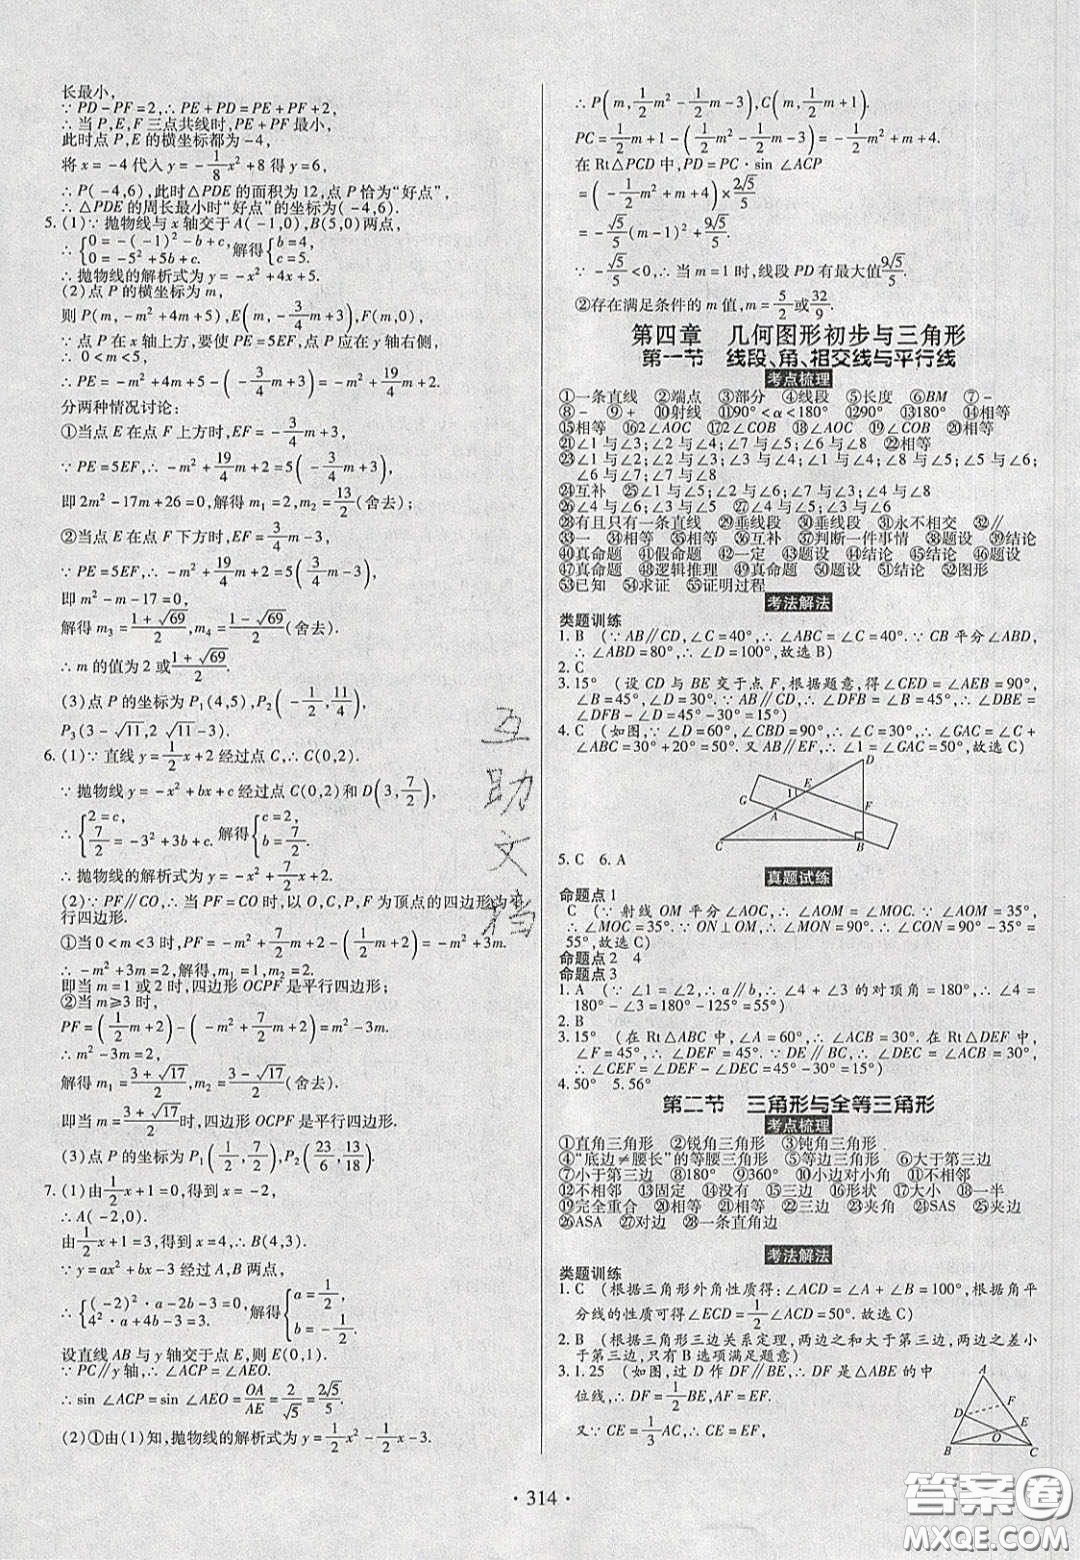 长最小,
∵ PD-PF=2,∴ PE+PD=PE+PF+2,
∴ 当 P,E,F 三点共线时,PE+PF 最小,
此时点 P,E 的横坐标都为-4,
将 x=-4 代入 y=-1/8x²+8 得 y=6,
∴ P(-4,6),此时△PDE 的面积为 12,点 P 恰为“好点”,
∴ △PDE 的周长最小时“好点”的坐标为(-4,6).
5.(1)∵ 抛物线与 x 轴交于 A(-1,0),B(5,0)两点,
∴ {0=-(-1)²-b+c, 0=-5²+5b+c. 解得{b=4, c=5.
∴ 抛物线的解析式为 y=-x²+4x+5.
(2)点 P 的横坐标为 m,
则 P(m,-m²+4m+5),E(m,-3/4m+3),F(m,0).
∵ 点 P 在 x 轴上方,要使 PE=5EF,点 P 应在 y 轴右侧,
∴ 0<m<5,PE=-m²+4m+5-(-3/4m+3)=-m²+19/4m+2.
分两种情况讨论:
①当点 E 在点 F 上方时,EF=-3/4m+3,
∵ PE=5EF,∴ -m²+19/4m+2=5(-3/4m+3),
即 2m²-17m+26=0,解得 m₁=2,m₂=13/2(舍去).
②当点 E 在点 F 下方时,EF=3/4m-3,
∵ PE=5EF,∴ -m²+19/4m+2=5(3/4m-3),
即 m²-m-17=0,
解得 m₃=(1+√69)/2,m₄=(1-√69)/2(舍去).
∴ m 的值为 2 或(1+√69)/2.
(3)点 P 的坐标为 P₁(4,5),P₂(-1/2,11/4),
P₃(3-√11,2√11-3).
6.(1)∵ 直线 y=1/2x+2 经过点 C,∴ C(0,2).
∵ 抛物线 y=-x²+bx+c 经过点 C(0,2)和 D(3,7/2),
∴ {2=c, 7/2=-3²+3b+c. 解得{c=2, b=7/2.
∴ 抛物线的解析式为 y=-x²+7/2x+2.
(2)∵ PF∥CO,∴ 当 PF=CO 时,以 O,C,P,F 为顶点的四边形为平
行四边形.
①当 0<m<3 时,PF=-m²+7/2m+2-(1/2m+2)=-m²+3m.
∴ -m²+3m=2,解得,m₁=1,m₂=2.
即当 m=1 或 2 时,四边形 OCPF 是平行四边形;
②当 m≥3 时,
PF=(1/2m+2)-(-m²+7/2m+2)=m²-3m.
∴ m²-3m=2,
解得 m₁=(3+√17)/2,m₂=(3-√17)/2(舍去).
即当 m=(3+√17)/2时,四边形 OCPF 是平行四边形.
(3)点 P 的坐标为 P₁(1/2,7/2),P₂(23/6,13/18).
7.(1)由1/2x+1=0,得到 x=-2,
∴ A(-2,0).
由1/2x+1=3,得到 x=4,∴ B(4,3).
∵ y=ax²+bx-3 经过 A,B 两点,
∴ {(-2)²·a-2b-3=0, 4²·a+4b-3=3. 解得{a=1/2, b=-1/2.
设直线 AB 与 y 轴交于点 E,则 E(0,1).
∵ PC∥y 轴,∴ ∠ACP=∠AEO.
∴ sin∠ACP=sin∠AEO=OA/AE=2/√5=2√5/5.
(2)①由(1)知,抛物线的解析式为 y=1/2x²-1/2x-3.
∴ P(m,1/2m²-1/2m-3),C(m,1/2m+1).
PC=1/2m+1-(1/2m²-1/2m-3)=-1/2m²+m+4.
在 Rt△PCD 中,PD=PC·sin∠ACP
=(-1/2m²+m+4)×2√5/5
=-√5/5(m-1)²+9√5/5.
∵ -√5/5<0,∴ 当 m=1 时,线段 PD 有最大值9√5/5.
②存在满足条件的 m 值,m=5/2或32/9.
第四章 几何图形初步与三角形
第一节 线段、角、相交线与平行线
考点梳理
①一条直线 ②端点 ③部分 ④线段 ⑤长度 ⑥BM ⑦-
⑧- ⑨+ ⑩射线 ⑪90°<α<180° ⑫90° ⑬180° ⑭相等
⑮相等 ⑯2∠AOC ⑰2∠COB ⑱∠AOC ⑲∠COB ⑳相等
㉑∠1 与∠3;∠2 与∠4;∠7 与∠5;∠6 与∠8 ㉒相等
㉓∠1 与∠2;∠2 与∠3;∠3 与∠4;∠1 与∠4;∠8 与∠5;∠5 与∠6;
∠6 与∠7;∠7 与∠8
㉔互补 ㉕∠1 与∠5;∠2 与∠6;∠3 与∠7;∠4 与∠8
㉖∠4 与∠6;∠3 与∠5 ㉗∠4 与∠5;∠3 与∠6
㉘有且只有一条直线 ㉙垂线段 ㉚垂线段 ㉛永不相交 ㉜∥
㉝一 ㉞相等 ㉟相等 ㊱互补 ㊲判断一件事情 ㊳题设 ㊴结论
㊵真命题 ㊶假命题 ㊷一定 ㊸题设 ㊹结论 ㊺结论 ㊻题设
㊼真命题 ㊽逻辑推理 ㊾真命题 ㊿题设 51结论 52图形
53已知 54求证 55证明过程
考法解法
类题训练
1. B (∵ AB∥CD,∠C=40°,∴ ∠ABC=∠C=40°.∵ CB 平分∠ABD,
∴ ∠ABD=80°,∴ ∠D=100°.故选 B)
2. C
3. 15° (设 CD 与 BE 交于点 F,根据题意,得∠CED=∠AEB=90°,
∠ABE=30°,∠D=∠C=45°,∵ AB∥CD,∴ ∠AFD=∠ABE=30°,∴ ∠DBE=
∠DFB-∠D=45°-30°=15°)
4. C (如图,∵ ∠CBD=90°,∠D=60°,∴ ∠C=30°,∴ ∠GAC=∠C+
∠AEB=30°+20°=50°.又 AE∥BF,∴ ∠1=∠GAC=50°,故选 C)
D
G
1
E
A
F
C
B
5. C 6. A
真题试练
命题点 1
C (∵ 射线 OM 平分∠AOC,∴ ∠AOM=∠MOC.∵ ∠AOM=35°,
∴ ∠MOC=35°.∵ ON⊥OM,∴ ∠MON=90°.∴ ∠CON=90°-35°=
55°,故选 C)
命题点 2 4
命题点 3
1. A (∵ ∠1=∠2,∴ a∥b,∴ ∠4+∠3 的对顶角=180°,∴ ∠4=
180°-∠3=180°-125°=55°)
2. B
3. 15° (在 Rt△ABC 中,∠A=60°,∴ ∠ACB=30°.在 Rt△DEF 中,
∠F=45°,∴ ∠DEF=45°.∵ DE∥BC,∴ ∠DEC=∠ACB=30°,
∴ ∠CEF=∠DEF-∠DEC=45°-30°=15°)
4. 50° 5. 56°
第二节 三角形与全等三角形
考点梳理
①直角三角形 ②锐角三角形 ③钝角三角形
④“底边≠腰长”的等腰三角形 ⑤等边三角形 ⑥大于第三边
⑦小于第三边 ⑧180° ⑨360° ⑩小边对小角 ⑪不相邻
⑫不相邻 ⑬固定 ⑭没有 ⑮三边 ⑯形状 ⑰大小 ⑱一半
⑲完全重合 ⑳相等 ㉑相等 ㉒三边 ㉓夹角 ㉔SAS ㉕夹边
㉖ASA ㉗对边 ㉘一条直角边
考法解法
类题训练
1. C (根据三角形外角性质得:∠ACD=∠A+∠B=100°,根据角平
分线的性质可得∠ECD=1/2∠ACD=50°.故选 C)
2. B (根据三角形三边关系定理,两边之和大于第三边,两边之差小
于第三边,只有 B 选项满足题意)
3. 1.25 (如图,过 D 作 DF∥BE,∴ DF 是△ABE 的中
位线,∴ DF=1/2BE,AF=EF.
又∵ CE=1/3AC,∴ CE=EF=AF.
A
F
D
E
O
B
C
· 314 ·
互助文档
答案圈
MXQE.COM